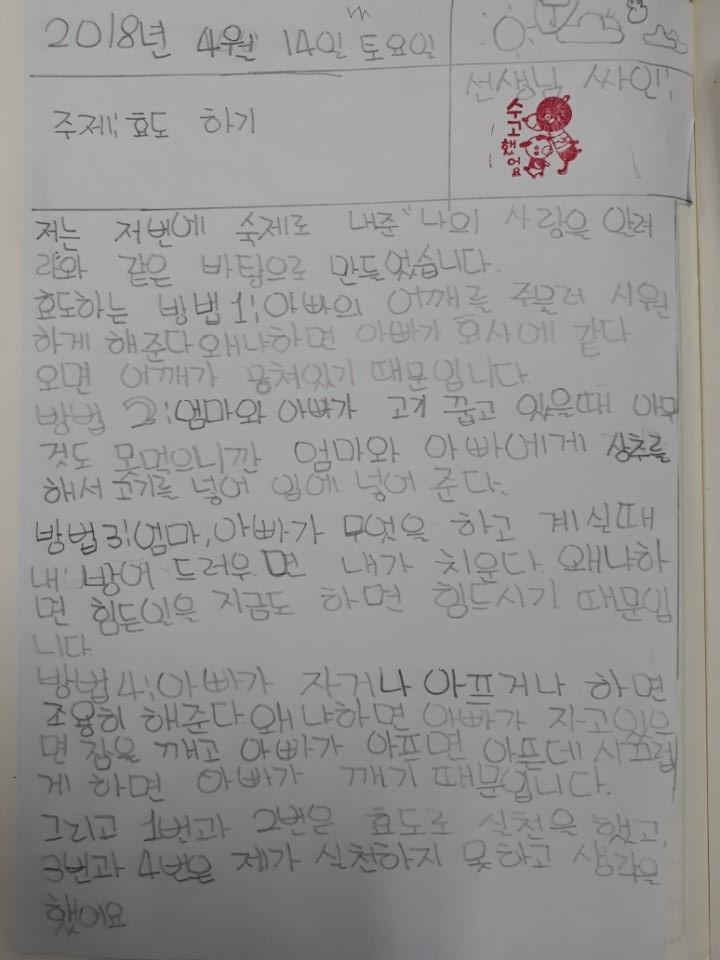 2018년 4월 14일 토요일
선생님 싸인:
주제: 효도 하기
수고했어요
저는 저번에 숙제로 내준 "나의 사랑을 알려
라와 같은 바탕으로 만들었습니다.
효도하는 방법 1: 아빠의 어깨를 주물러 시원
하게 해준다 왜냐하면 아빠가 회사에 같다
오면 어깨가 뭉쳐있기 때문입니다.
방법 2: 엄마와 아빠가 고기 꿉고 있을때 아무
것도 못먹으니깐 엄마와 아빠에게 상추를
해서 고기를 넣어 입에 넣어 준다.
방법3: 엄마, 아빠가 무엇을 하고 계실때
내 방어 드러우면 내가 치운다 왜냐하
면 힘든일을 지금도 하면 힘드시기 때문입
니다.
방법4: 아빠가 자거나 아프거나 하면
조용히 해준다 왜냐하면 아빠가 자고있으
면 잠을 깨고 아빠가 아프면 아픈데 시끄럽
게 하면 아빠가 깨기 때문입니다.
그리고 1번과 2번은 효도로 실천을 했고,
3번과 4번을 제가 실천하지 못하고 생각을
했어요